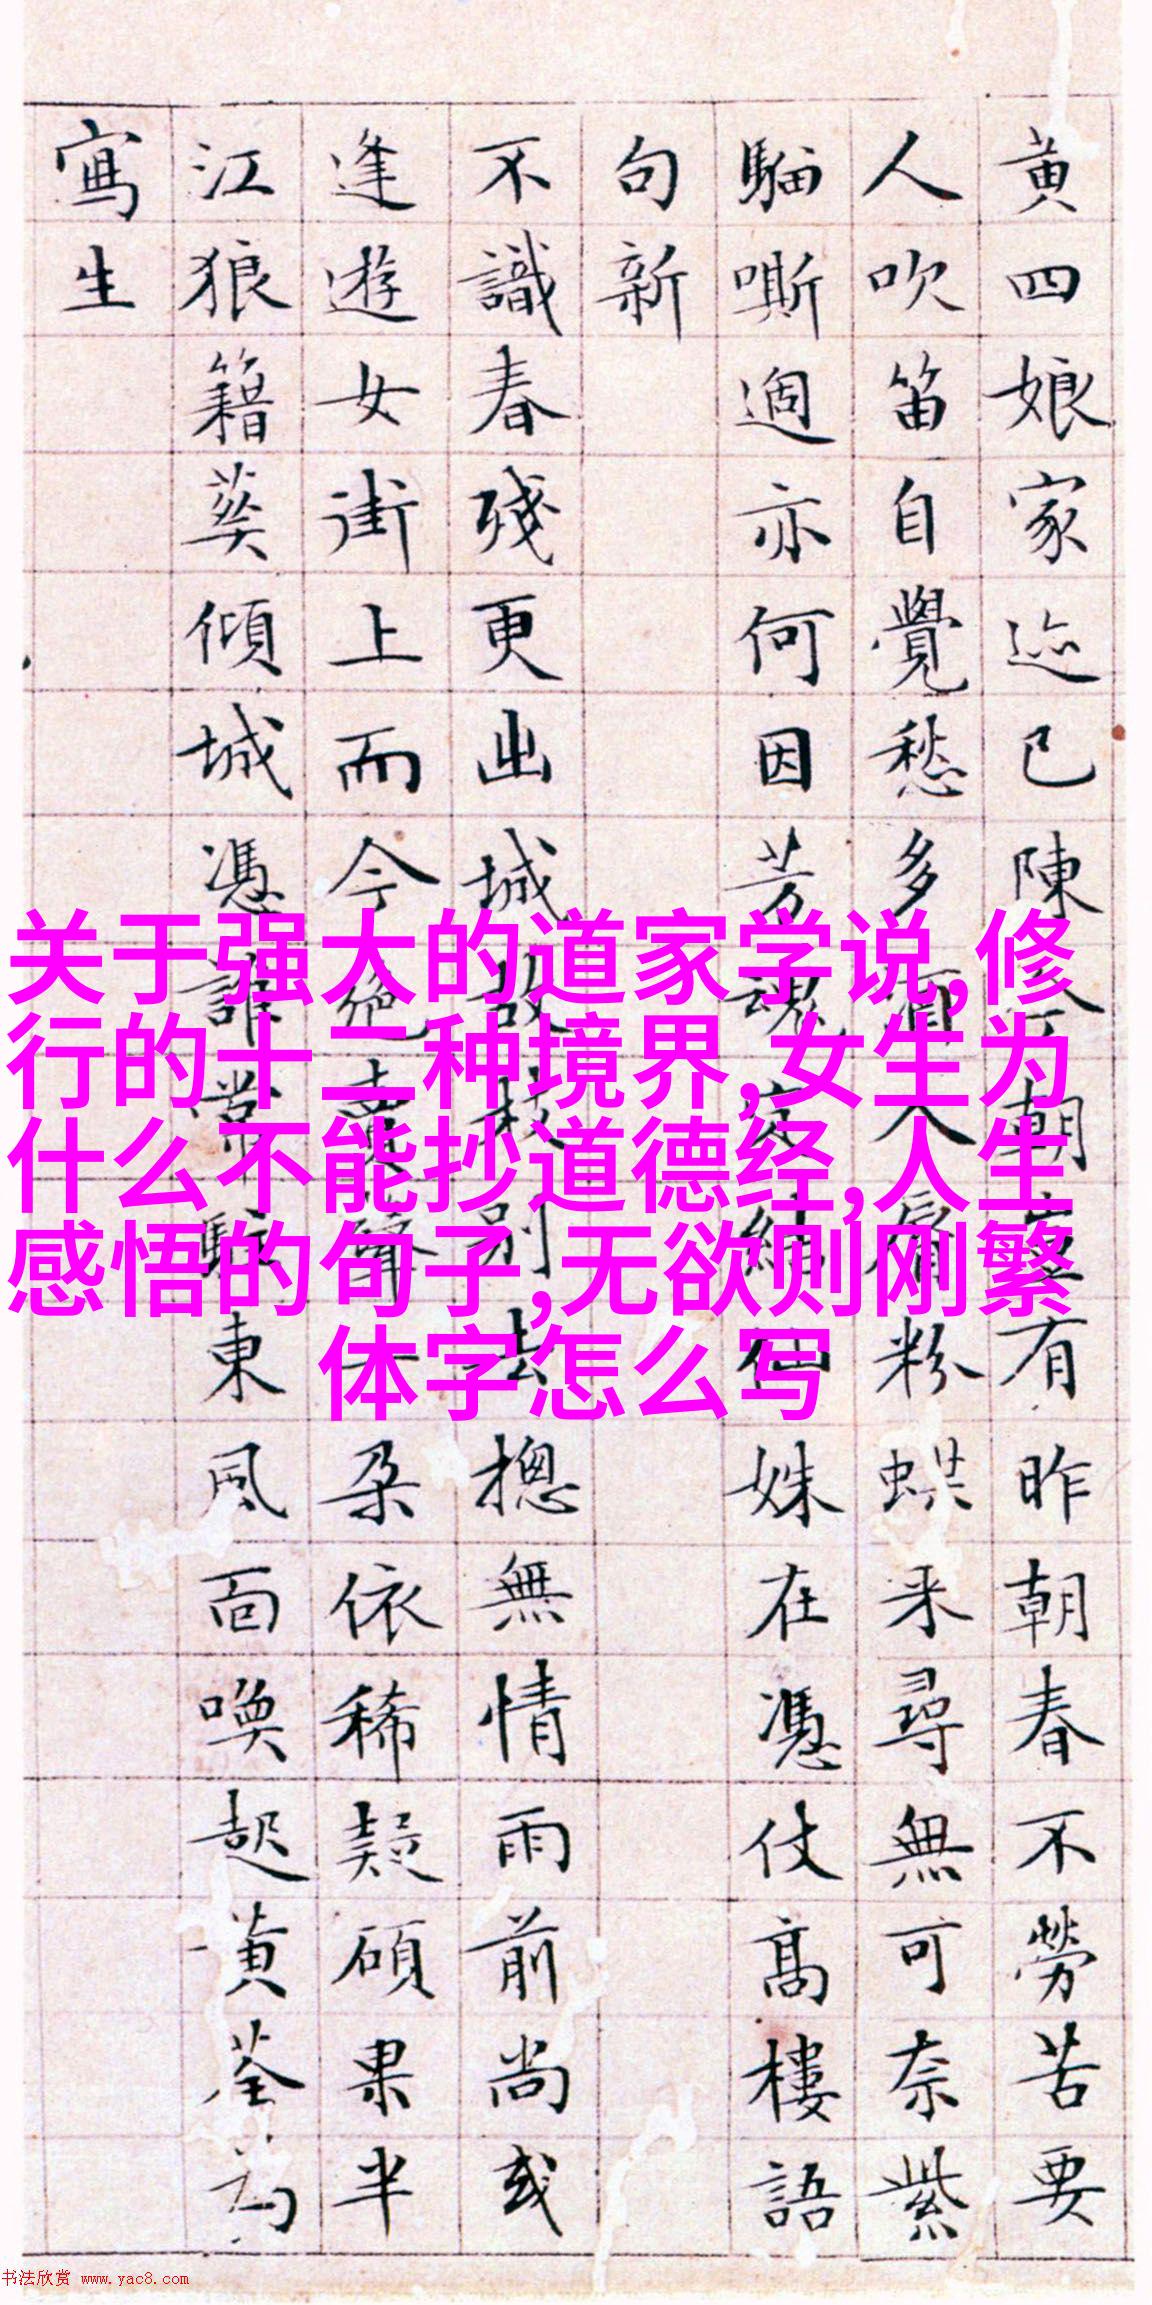 黄四娘家迹已陳朝有昨朝春不勞苦要
人吹笛自覺愁多粉蝶来尋無可奈紫
騮嘶過亦何因芳魂結仙姝在憑仗高樓語
句新
不識春殘更出城故枝別去摠無情雨前尚或
逢遊女街上而今絕賣聲一朵依稀疑碩果半
江狼籍葵傾城憑誰常駐東風面喚起黄荃為
寫生
关于强大的道家学说,修
行的十二种境界,女生为
什么不能抄道德经,人生
感悟的句子,无欲则刚繁
体字怎么写
书法欣赏 www.yac8.com